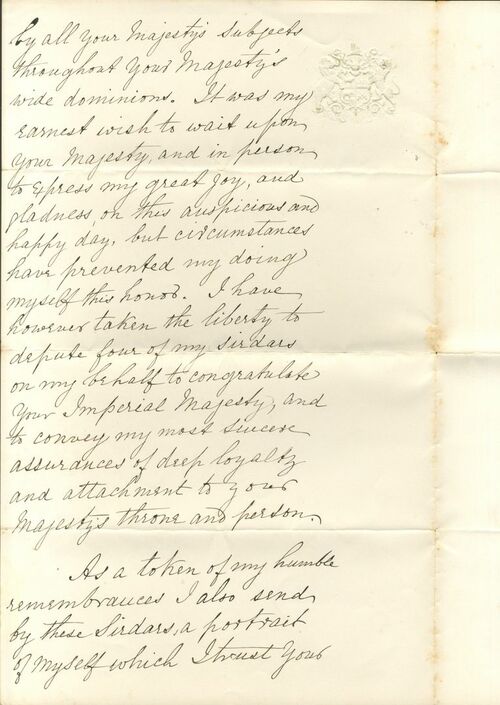 by all Your Majesty's Subjects
throughout Your Majesty's
wide dominions. It was my
earnest wish to wait upon
Your Majesty, and in person
to express my great Joy, and
gladness on this auspicious and
happy day, but circumstances
have prevented my doing
myself this honor. I have
however taken the liberty to
depute four of my Sirdars
on my behalf to congratulate
Your Imperial Majesty, and
to convey my most sincere
assurances of deep loyalty
and attachment to your
Majesty's throne and person.
As a token of my humble
remembrances I also send
by these Sirdars, a portrait
of myself which I trust Your